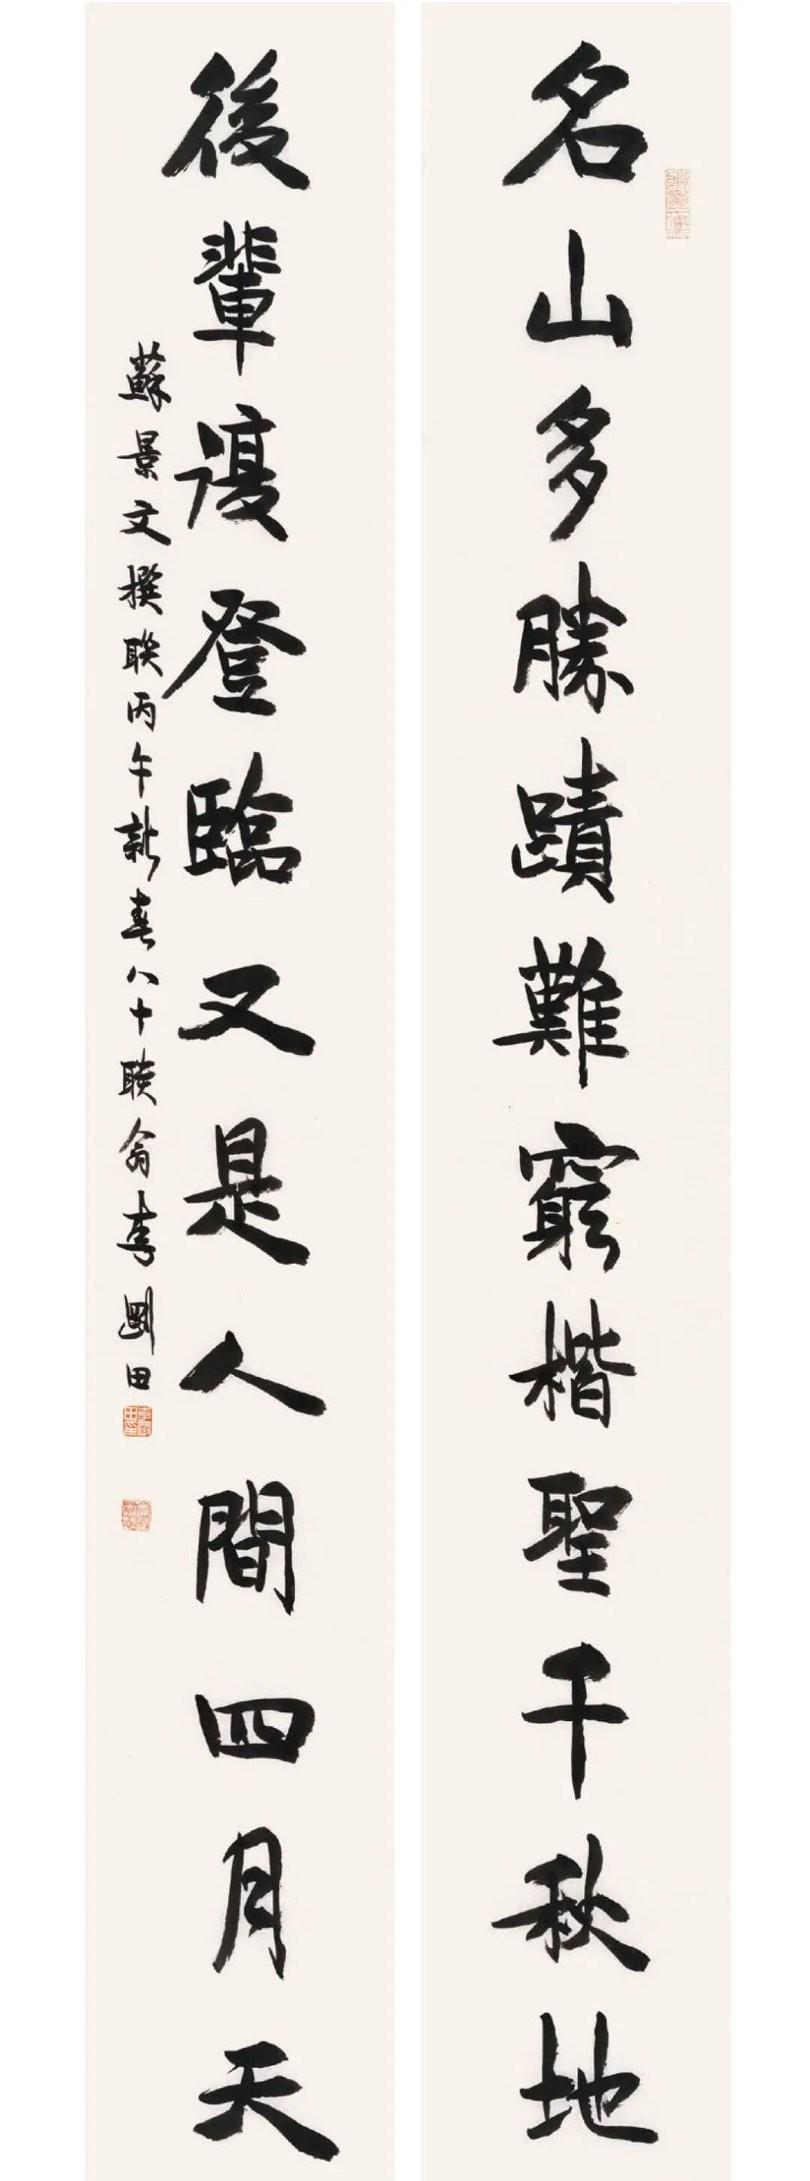 名山多勝蹟難窮楷聖千秋地
後輩復登臨又是人間四月天
蘇景文撰联丙午新春八十聯翁李剛田